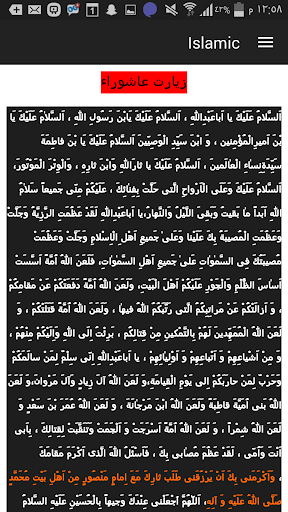 ١٢:٥٨ م ٤٣%
Islamic
زیارت عاشوراء
اَلسَّلامُ عَلَيْكَ يا اَباعَبْدِاللهِ ، اَلسَّلامُ عَلَيْكَ يَابْنَ رَسُولِ اللهِ ، اَلسَّلامُ عَلَيْكَ يَا
بْنَ اَميرِالْمُؤْمِنينَ ، وَ ابْنَ سَيِّدِ الْوَصِيّينَ اَلسَّلامُ عَلَيْكَ يَا بْنَ فاطِمَةَ
سَيِّدَةِنِساءِ الْعالَمينَ ، اَلسَّلامُ عَلَيْكَ يا ثارَاللهِ وَابْنَ ثارِهِ ، وَالْوِتْرَ الْمَوْتُورَ،
اَلسَّلامُ عَلَيْكَ وَعَلَى الْاَرْواحِ الَّتى حَلَّتْ بِفِنائِكَ ، عَلَيْكُمْ مِنّى جَميعاً سَلامُ
اللهِ اَبَداً ما بَقيتُ وَبَقِىَ اللَّيْلُ وَالنَّهارُ،يا اَباعَبْدِاللهِ لَقَدْ عَظُمَتِ الرَّزِيَّةُ وَجَلَّتْ
وَعَظُمَتِ الْمُصيبَةُ بِكَ عَلَيْنا وَعَلى جَميعِ اَهْلِ الْاِسْلامِ وَجَلَّتْ وَعَظُمَتْ
مُصيبَتُكَ فِى السَّمٰواتِ عَلى جَميعِ اَهْلِ السَّمٰواتِ، فَلَعَنَ اللهُ اُمَّةً اَسَّسَتْ
اَساسَ الظُّلْمِ وَالْجَوْرِ عَلَيْكُمْ اَهْلَ الْبَيْتِ، وَلَعَنَ اللهُ اُمَّةً دَفَعَتْكُمْ عَنْ مَقامِكُمْ
، وَ اَزالَتْكُمْ عَنْ مَراتِبِكُمُ الَّتى رَتَّبَكُمُ اللهُ فيها ، وَ لَعَنَ اللهُ اُمَّةً قَتَلَتْكُمْ ، وَ
لَعَنَ اللهُ الْمُمَهِّدينَ لَهُمْ بِالتَّمْكينِ مِنْ قِتالِكُمْ ، بَرِئْتُ اِلَى اللهِ وَاِلَيْكُمْ مِنْهُمْ ،
وَ مِنْ اَشْياعِهِمْ وَ اَتْباعِهِمْ وَ اَوْلِيائِهِمْ ، يا اَباعَبْدِاللهِ اِنّى سِلْمٌ لِمَنْ سالَمَكُمْ
وَحَرْبٌ لِمَنْ حارَبَكُمْ اِلى يَوْمِ الْقِيامَةِ،وَ لَعَنَ اللهُ آلَ زِيادٍ وَآلَ مَرْوانَ،وَ لَعَنَ
اللهُ بَنى اُمَيَّةَ قاطِبَةً وَلَعَنَ اللهُ ابْنَ مَرْجانَةَ ، وَ لَعَنَ اللهُ عُمَرَ بْنَ سَعْدٍ وَ
لَعَنَ اللهُ شِمْراً ، وَ لَعَنَ اللهُ اُمَّةً اَسْرَجَتْ وَ اَلْجَمَتْ وَتَنَقَّبَتْ لِقِتالِكَ ، بِاَبى
اَنْتَ وَاُمّى ، لَقَدْ عَظُمَ مُصابى بِكَ ، فَاَسْئَلُ اللهَ الَّذى اَكْرَمَ مَقامَكَ
، وَاَكْرَمَنى بِكَ اَنْ يَرْزُقَنى طَلَبَ ثارِكَ مَعَ اِمامٍ مَنْصُورٍ مِنْ اَهْلِ بَيْتِ مُحَمَّدٍ
صَلَّى اللهُ عَلَيْهِ وَ آلِهِ، اَللّهُمَّ اجْعَلْنى عِنْدَكَ وَجيهاً بِالْحُسَيْنِ عَلَيْهِ السَّلامُ